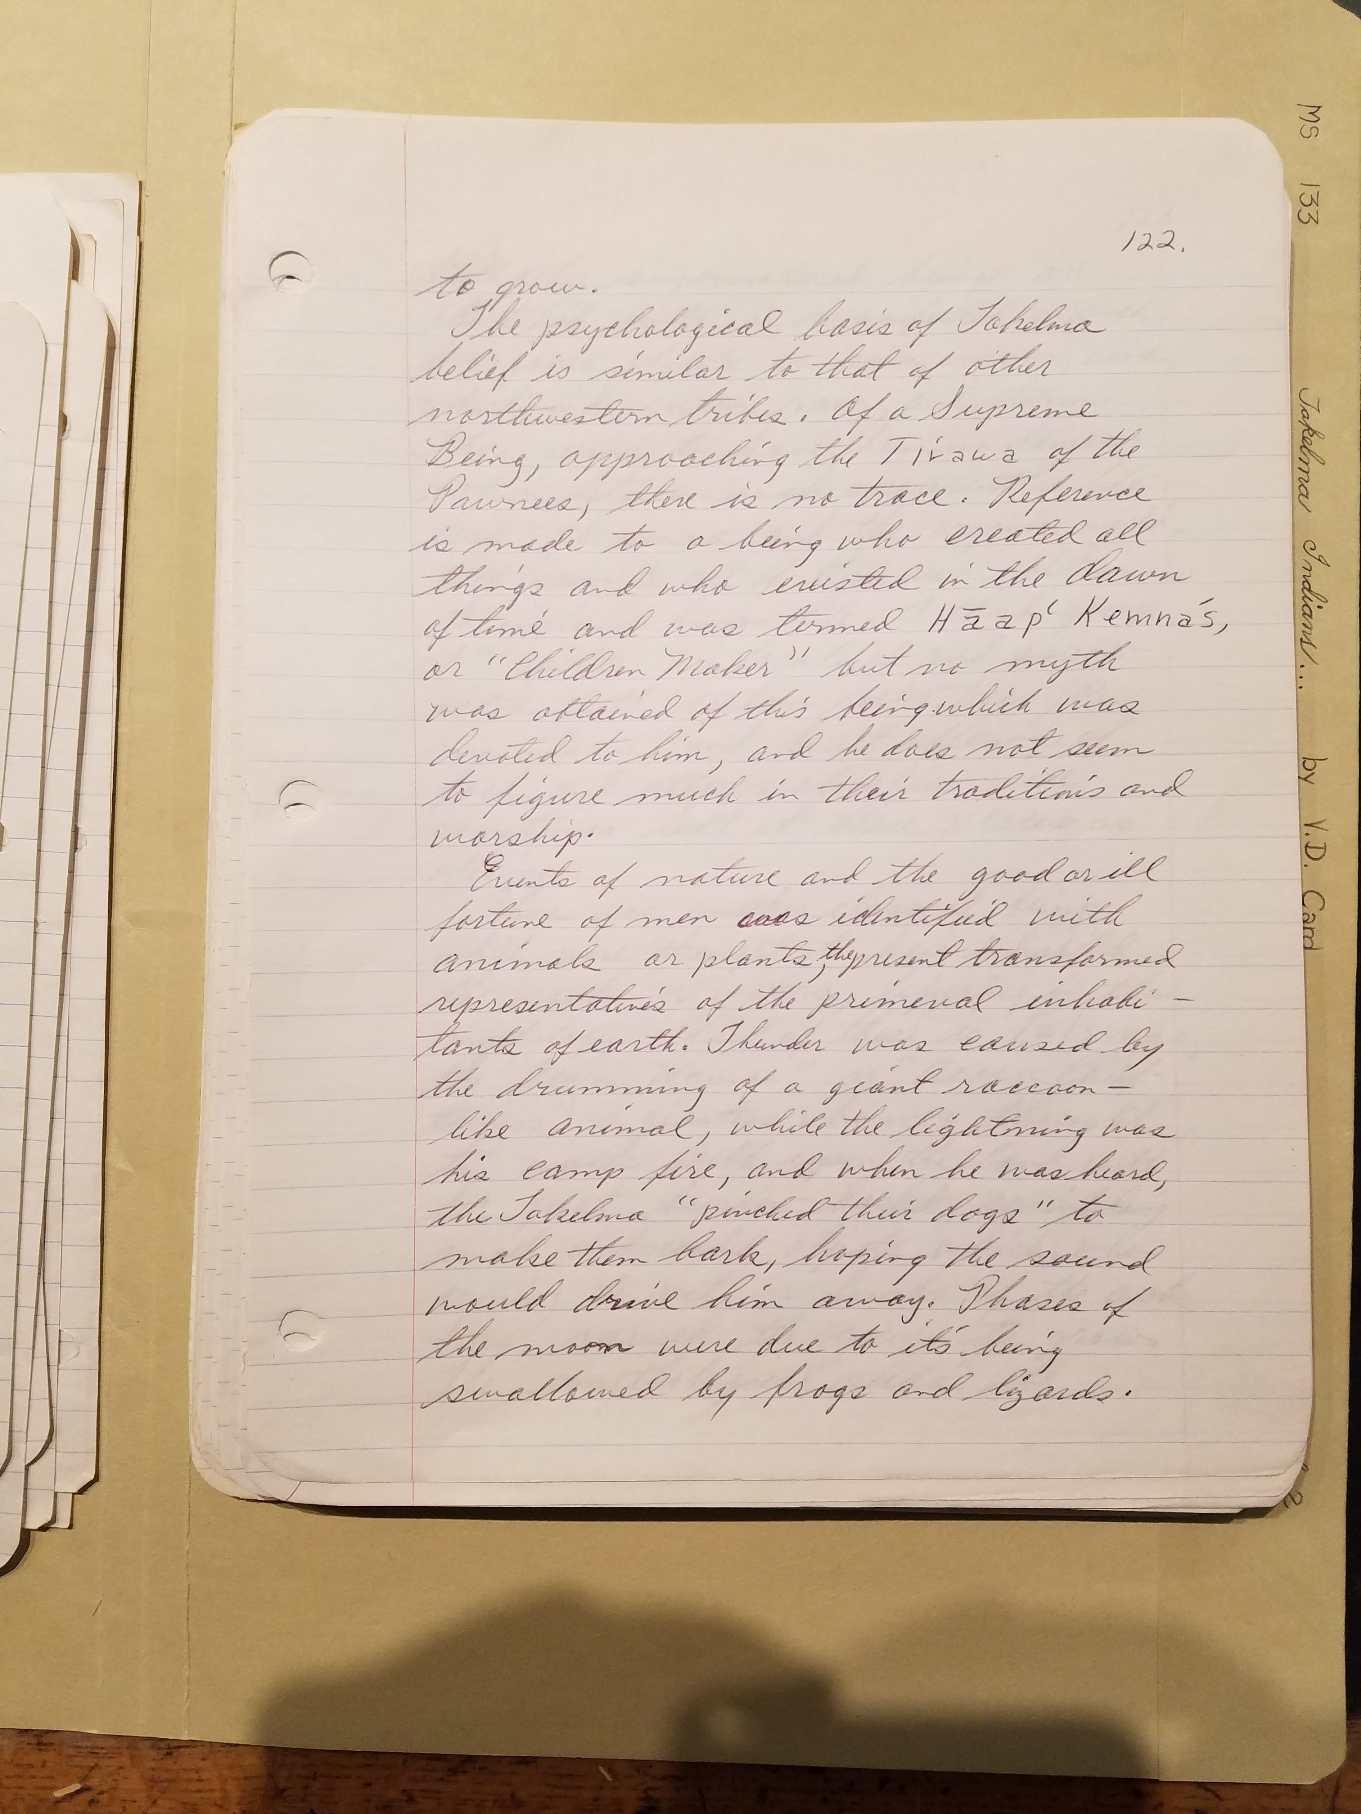 122.
to grow.
The psychological basis of Takelma
belief is similar to that of other
northwestern tribes. Of a Supreme
Being, approaching the Tirawa of the
Pawnees, there is no trace. Reference
is made to a being who created all
things and who existed in the dawn
of time and was termed Hāapʼ Kemnás,
or "Children Maker" but no myth
was obtained of this being which was
devoted to him, and he does not seem
to figure much in their traditions and
worship.
Events of nature and the good or ill
fortune of men was identified with
animals or plants, the present transformed
representatives of the primeval inhabi-
tants of earth. Thunder was caused by
the drumming of a giant raccoon-
like animal, while the lightning was
his camp fire, and when he was heard,
the Takelma "pinched their dogs" to
make them bark, hoping the sound
would drive him away. Phases of
the moon were due to it's being
swallowed by frogs and lizards.
MS 133 Takelma Indians... by V.D. Card
2